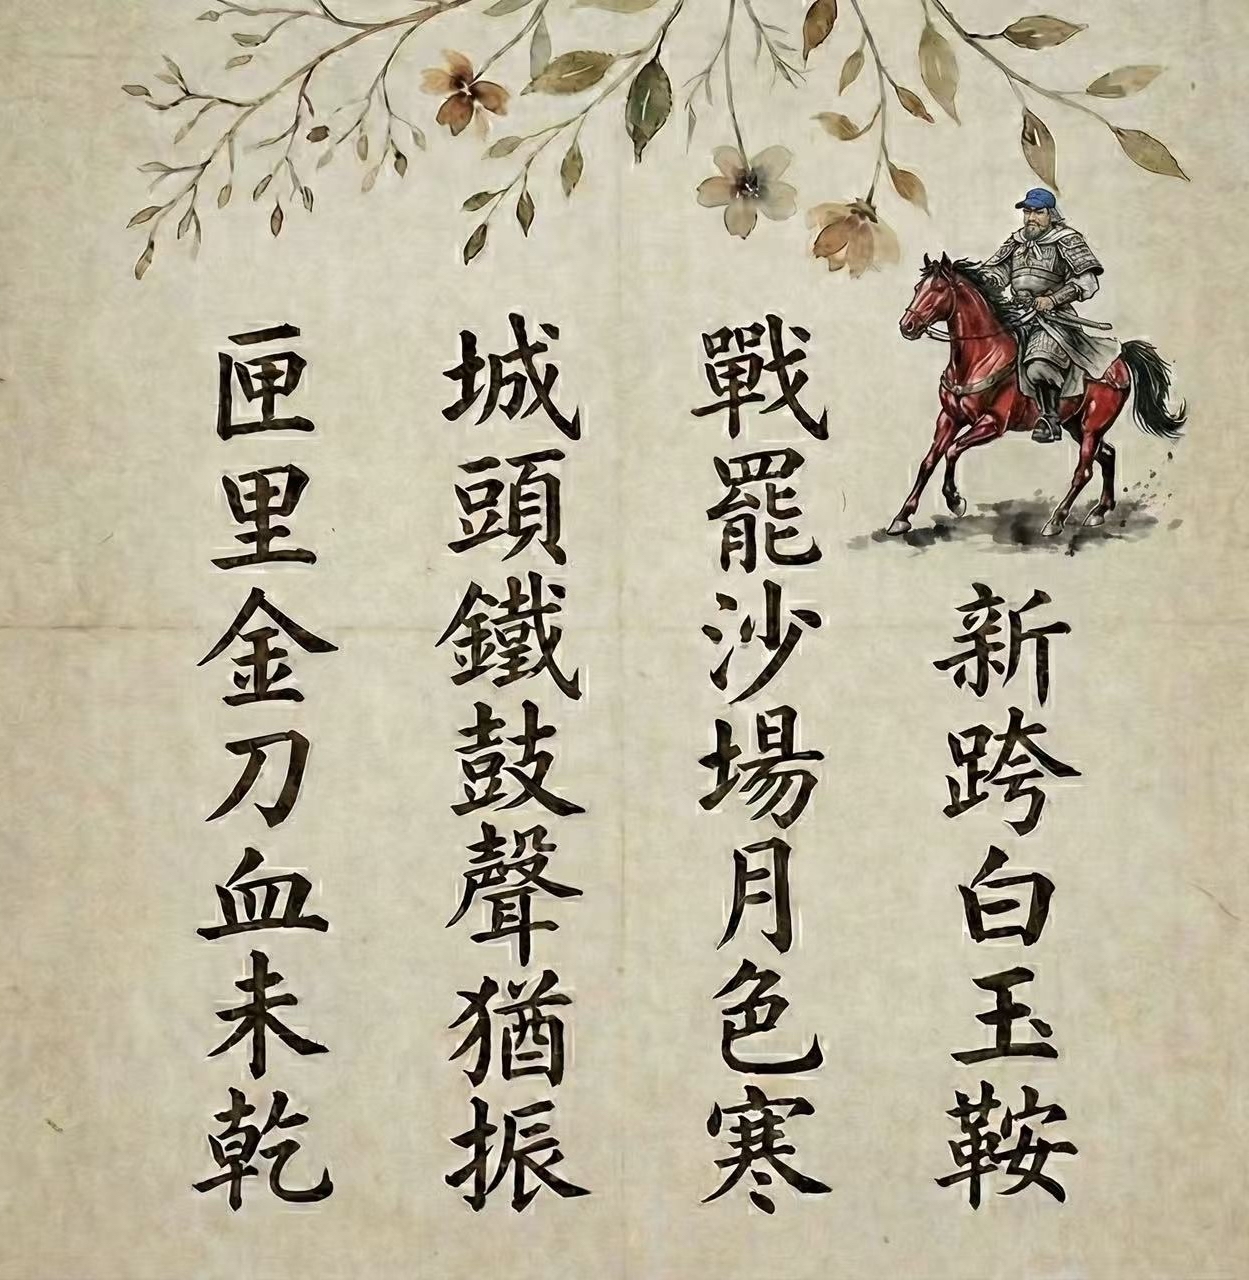 新跨白玉鞍
戰罷沙場月色寒
城頭鐵鼓聲猶振
匣里金刀血未乾